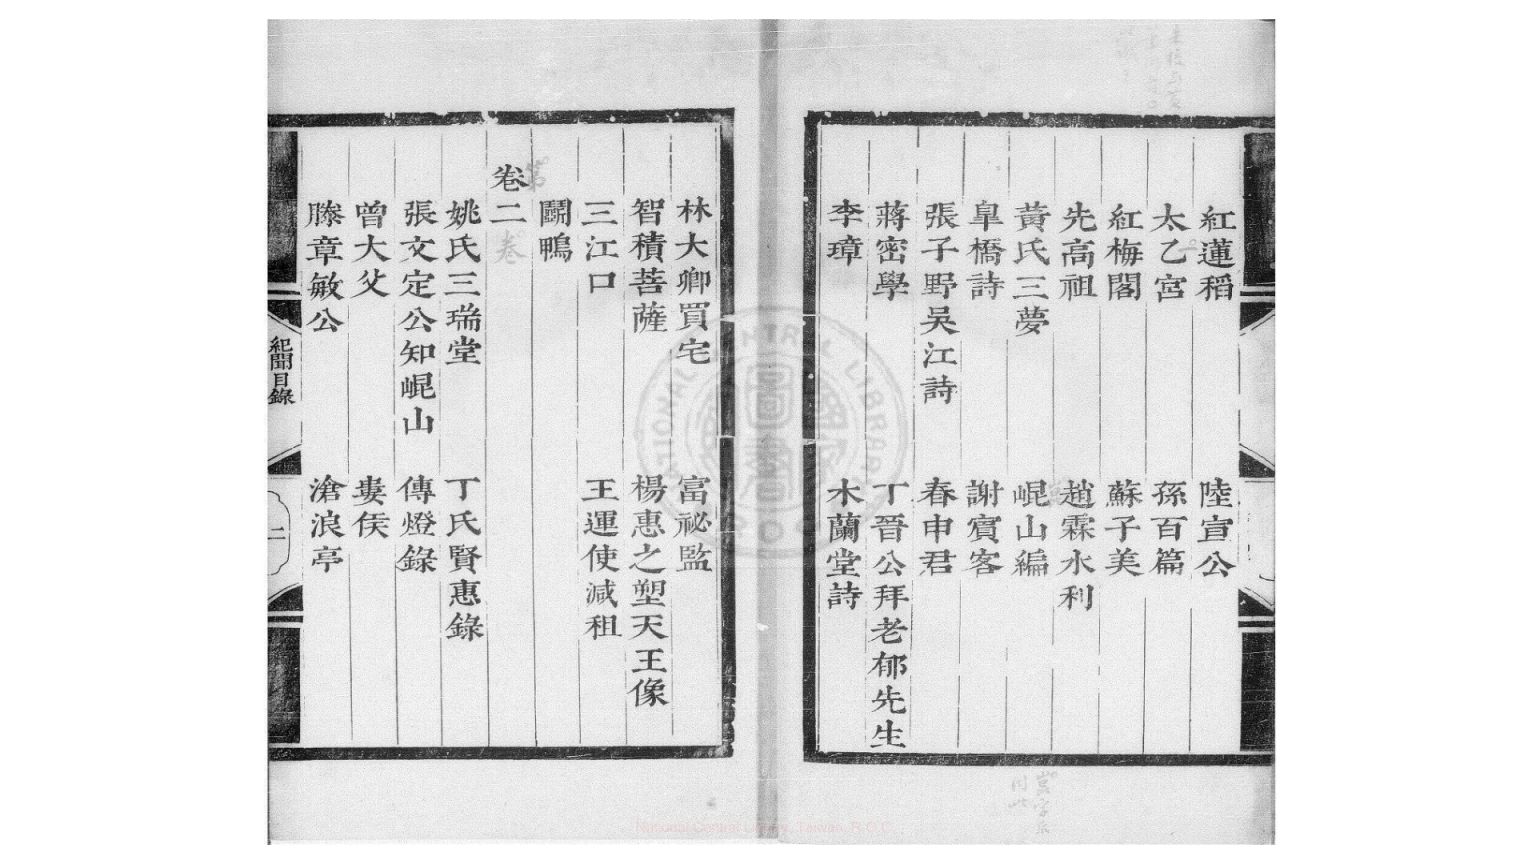 紅蓮稻　陸宣公
太乙宮　孫百篇
紅梅閣　蘇子美
先高祖　趙霖水利
黃氏三夢　崐山編
皐橋詩　謝賓客
張子野吳江詩　春申君
蔣密學　丁晉公拜老郁先生
李璋　木蘭堂詩
林大卿買宅　富祕監
智積菩薩　楊惠之塑天王像
三江口　王運使減租
鬭鴨
卷二
第
卷
姚氏三瑞堂　丁氏賢惠錄
張文定公知崐山　傳燈錄
曾大父　婁侯
滕章敏公　滄浪亭
紀聞目錄
二
NATIONAL CENTRAL LIBRARY
國家圖書館
National Central Library, Taiwan, R.O.C.